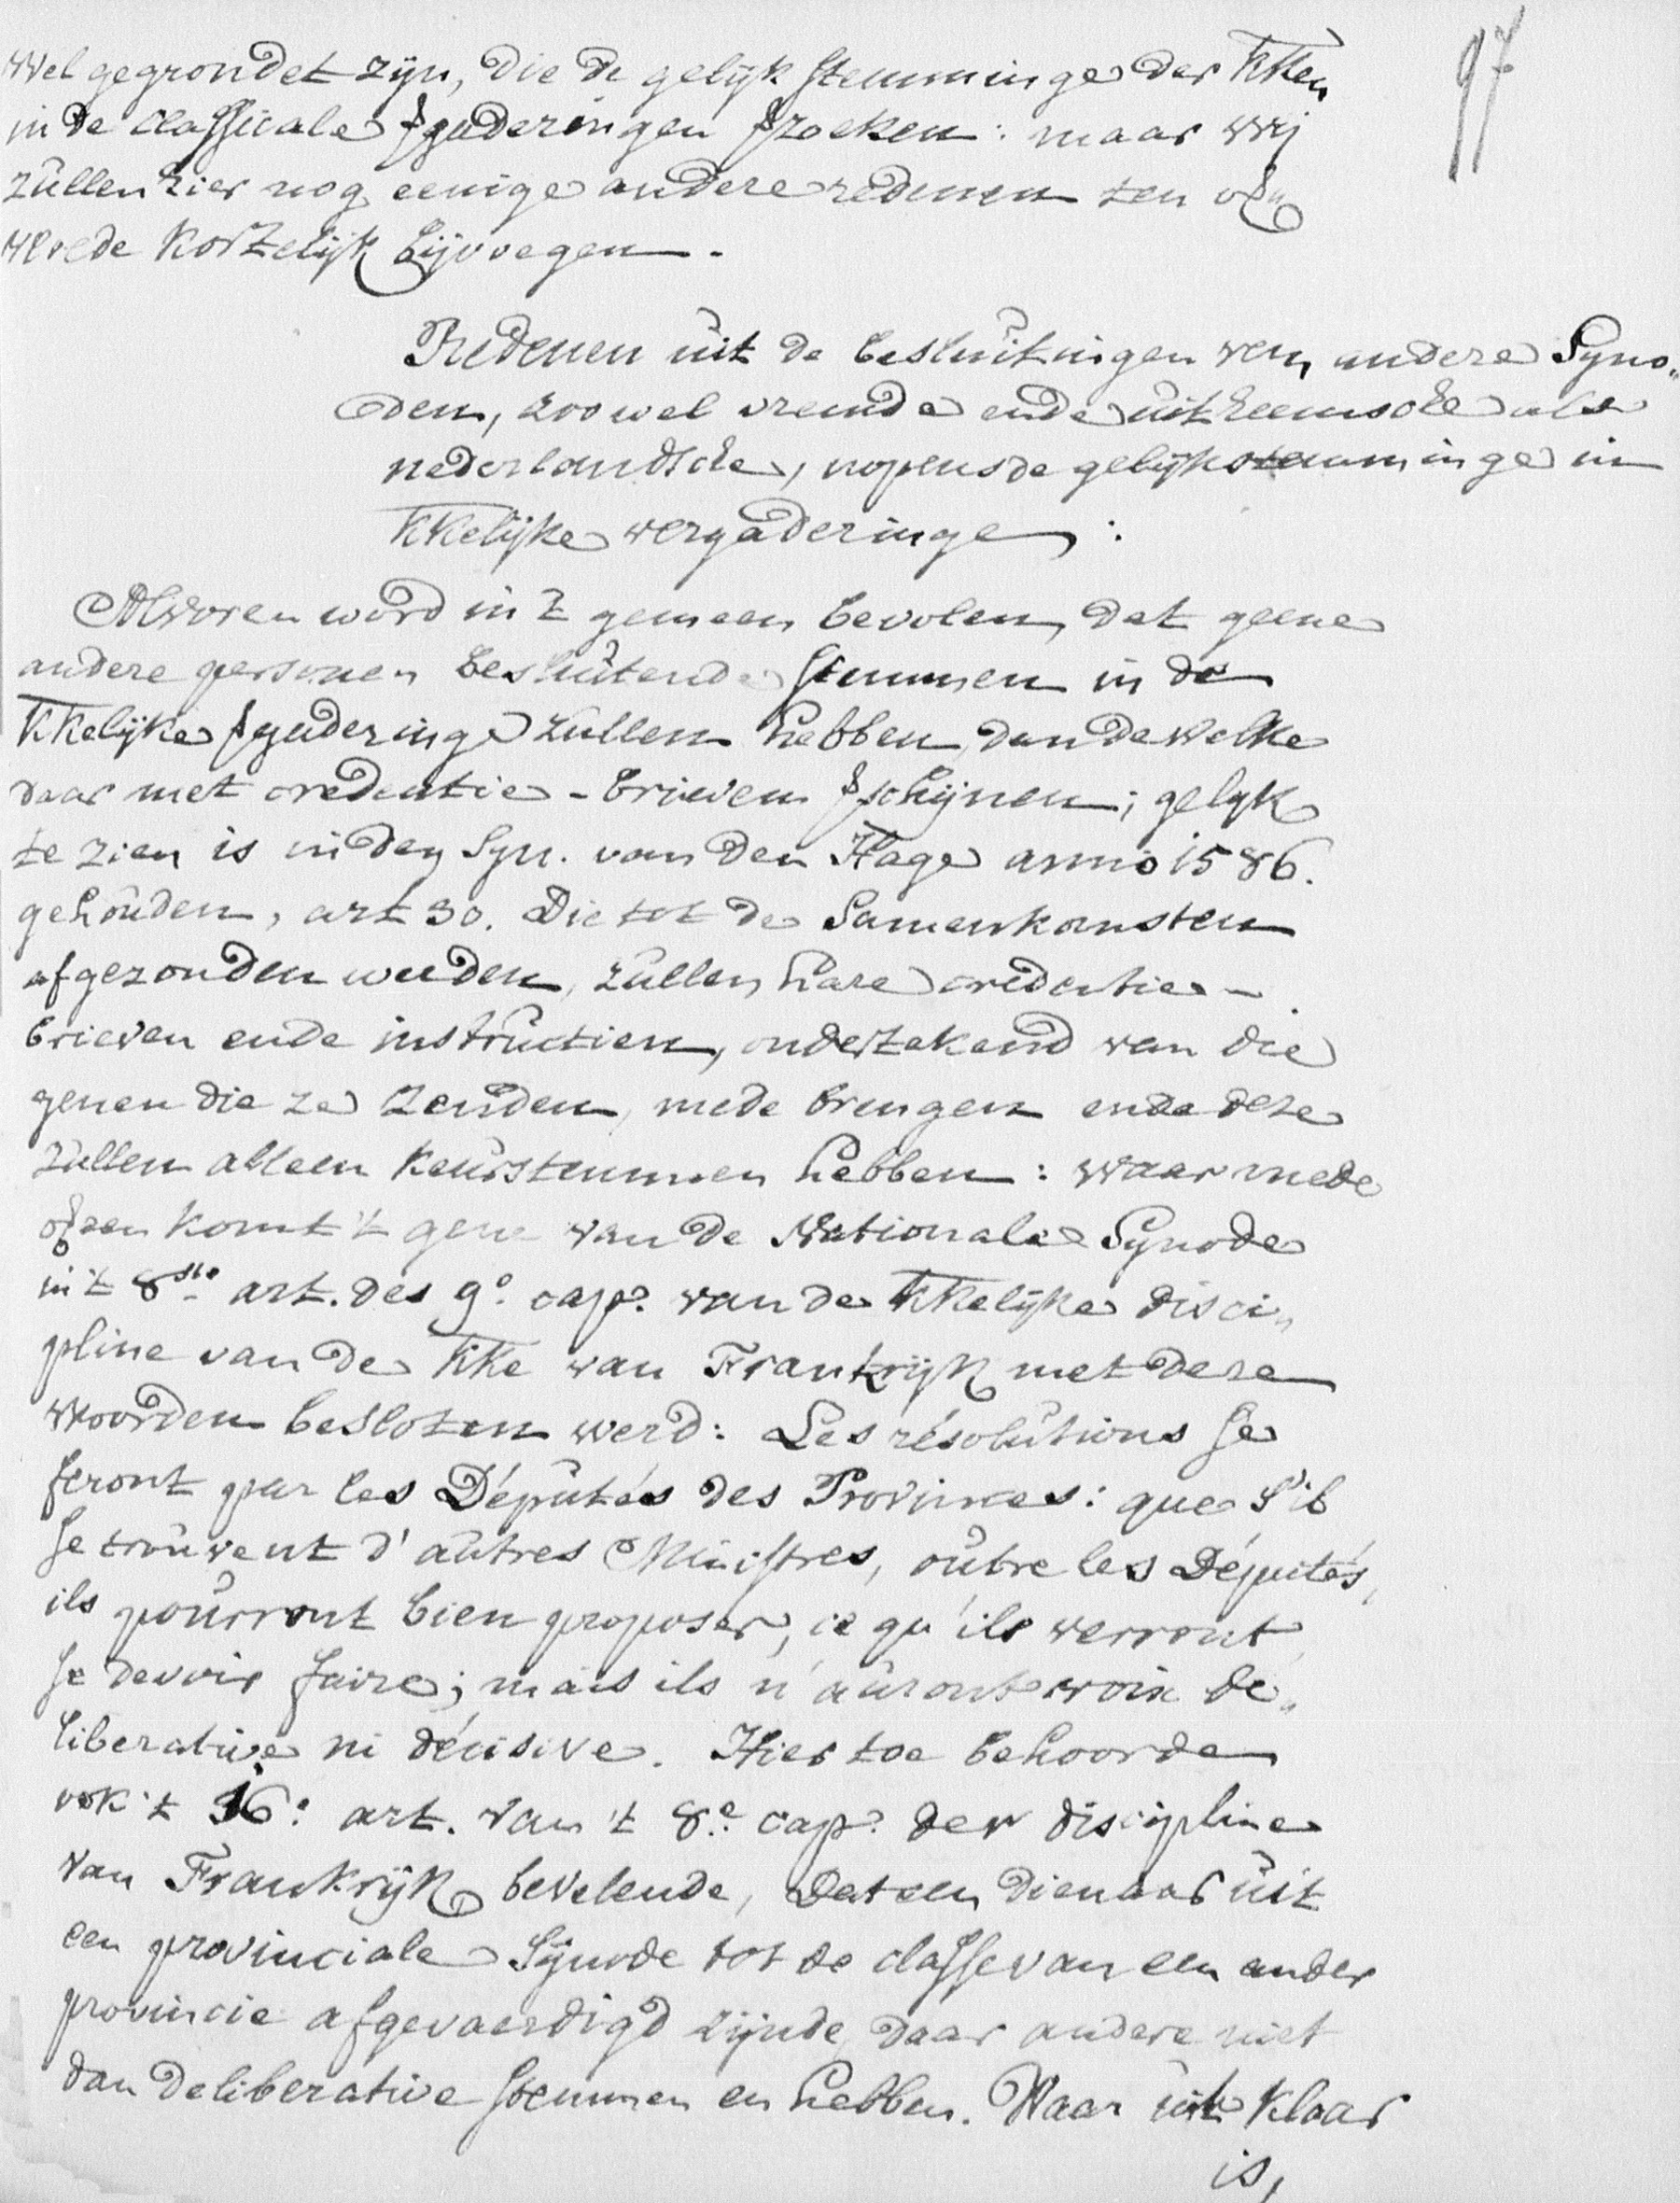 97
wel gegrondet zijn, die de gelijk stemminge der KKen
in de classicale vgaderingen vzoeken: maar wij
zullen hier nog eenige andere redenen ten
kortelijk bijvoegen.
Redenen uit de besluitingen van andere Syno„
den, zoo wel vremde ende uitheemsche als
nederlandsche, nopens de gelijkstemminge in
KKelijke vergaderinge:
Alvoren word in 't gemeen bevolen, dat geene
andere personen besluitende stemmen in de
KKelijke vgaderinge zullen hebben, dan de welke
daar met credentie-brieven vschijnen; gelijk
te zien is in den Syn. van den Hage anno 1586.
gehouden, art 30. Die tot de Samenkomsten
afgezonden werden, zullen hare credentie-
brieven ende instructien, ondertekend van die
genen die ze zenden, mede brengen ende deze
zullen alleen keurstemmen hebben: waar mede
komt 't gene van de Nationale Synode
in 't 8ste art. des 9.° cap. van de KKelijke disci„
pline van de KKe van Frankrijk met deze
woorden besloten werd: Les résolutions se
feront par les Députés des Provinces: que s'il
se trouvent d'autres Ministres, outre les Députés,
ils pourront bien proposer, ce qu'ils verront
se devoir faire; mais ils n'auront voix dé„
liberative ni décisive. Hier toe behoorde
ook 't 16.e art. van 't 8.e cap. der discipline
van Frankrijk bevelende, dat een dienaar uit
een provinciale Synode tot de classe van een ander
provincie afgevaerdigd zijnde, daar andere niet
dan deliberative stemmen en hebben. Waar uit klaar
is,